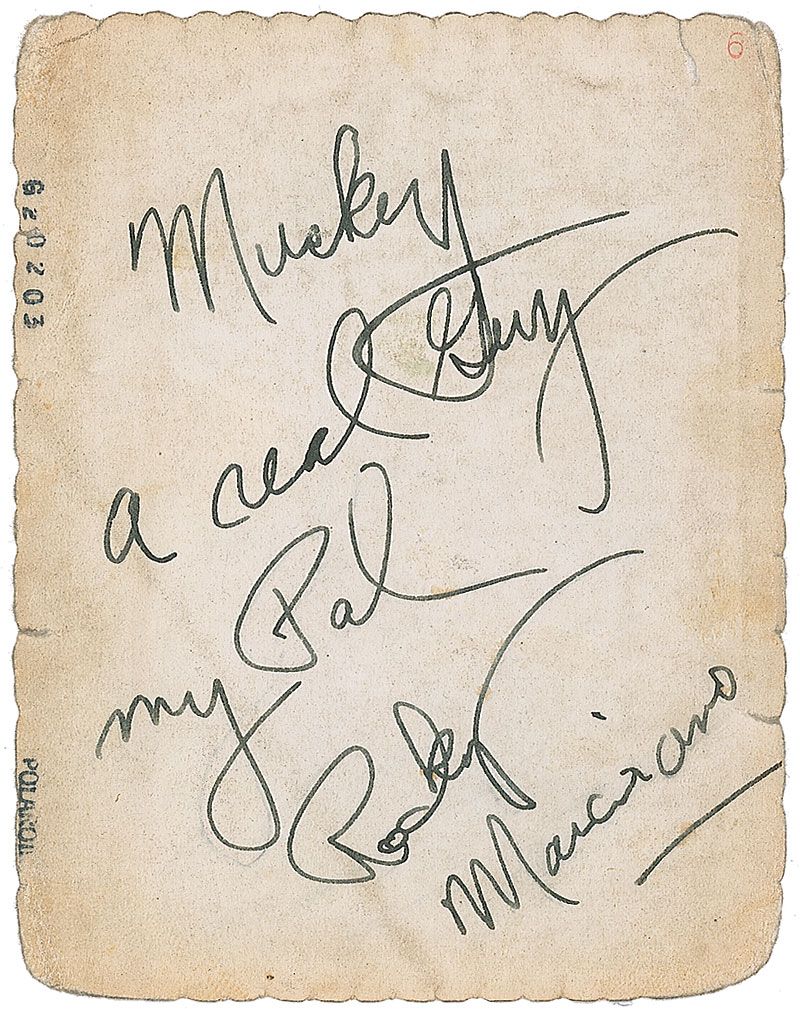 6
620203
Muckey
a real Guy
my Pal
Rocky
Marciano
POLAROID